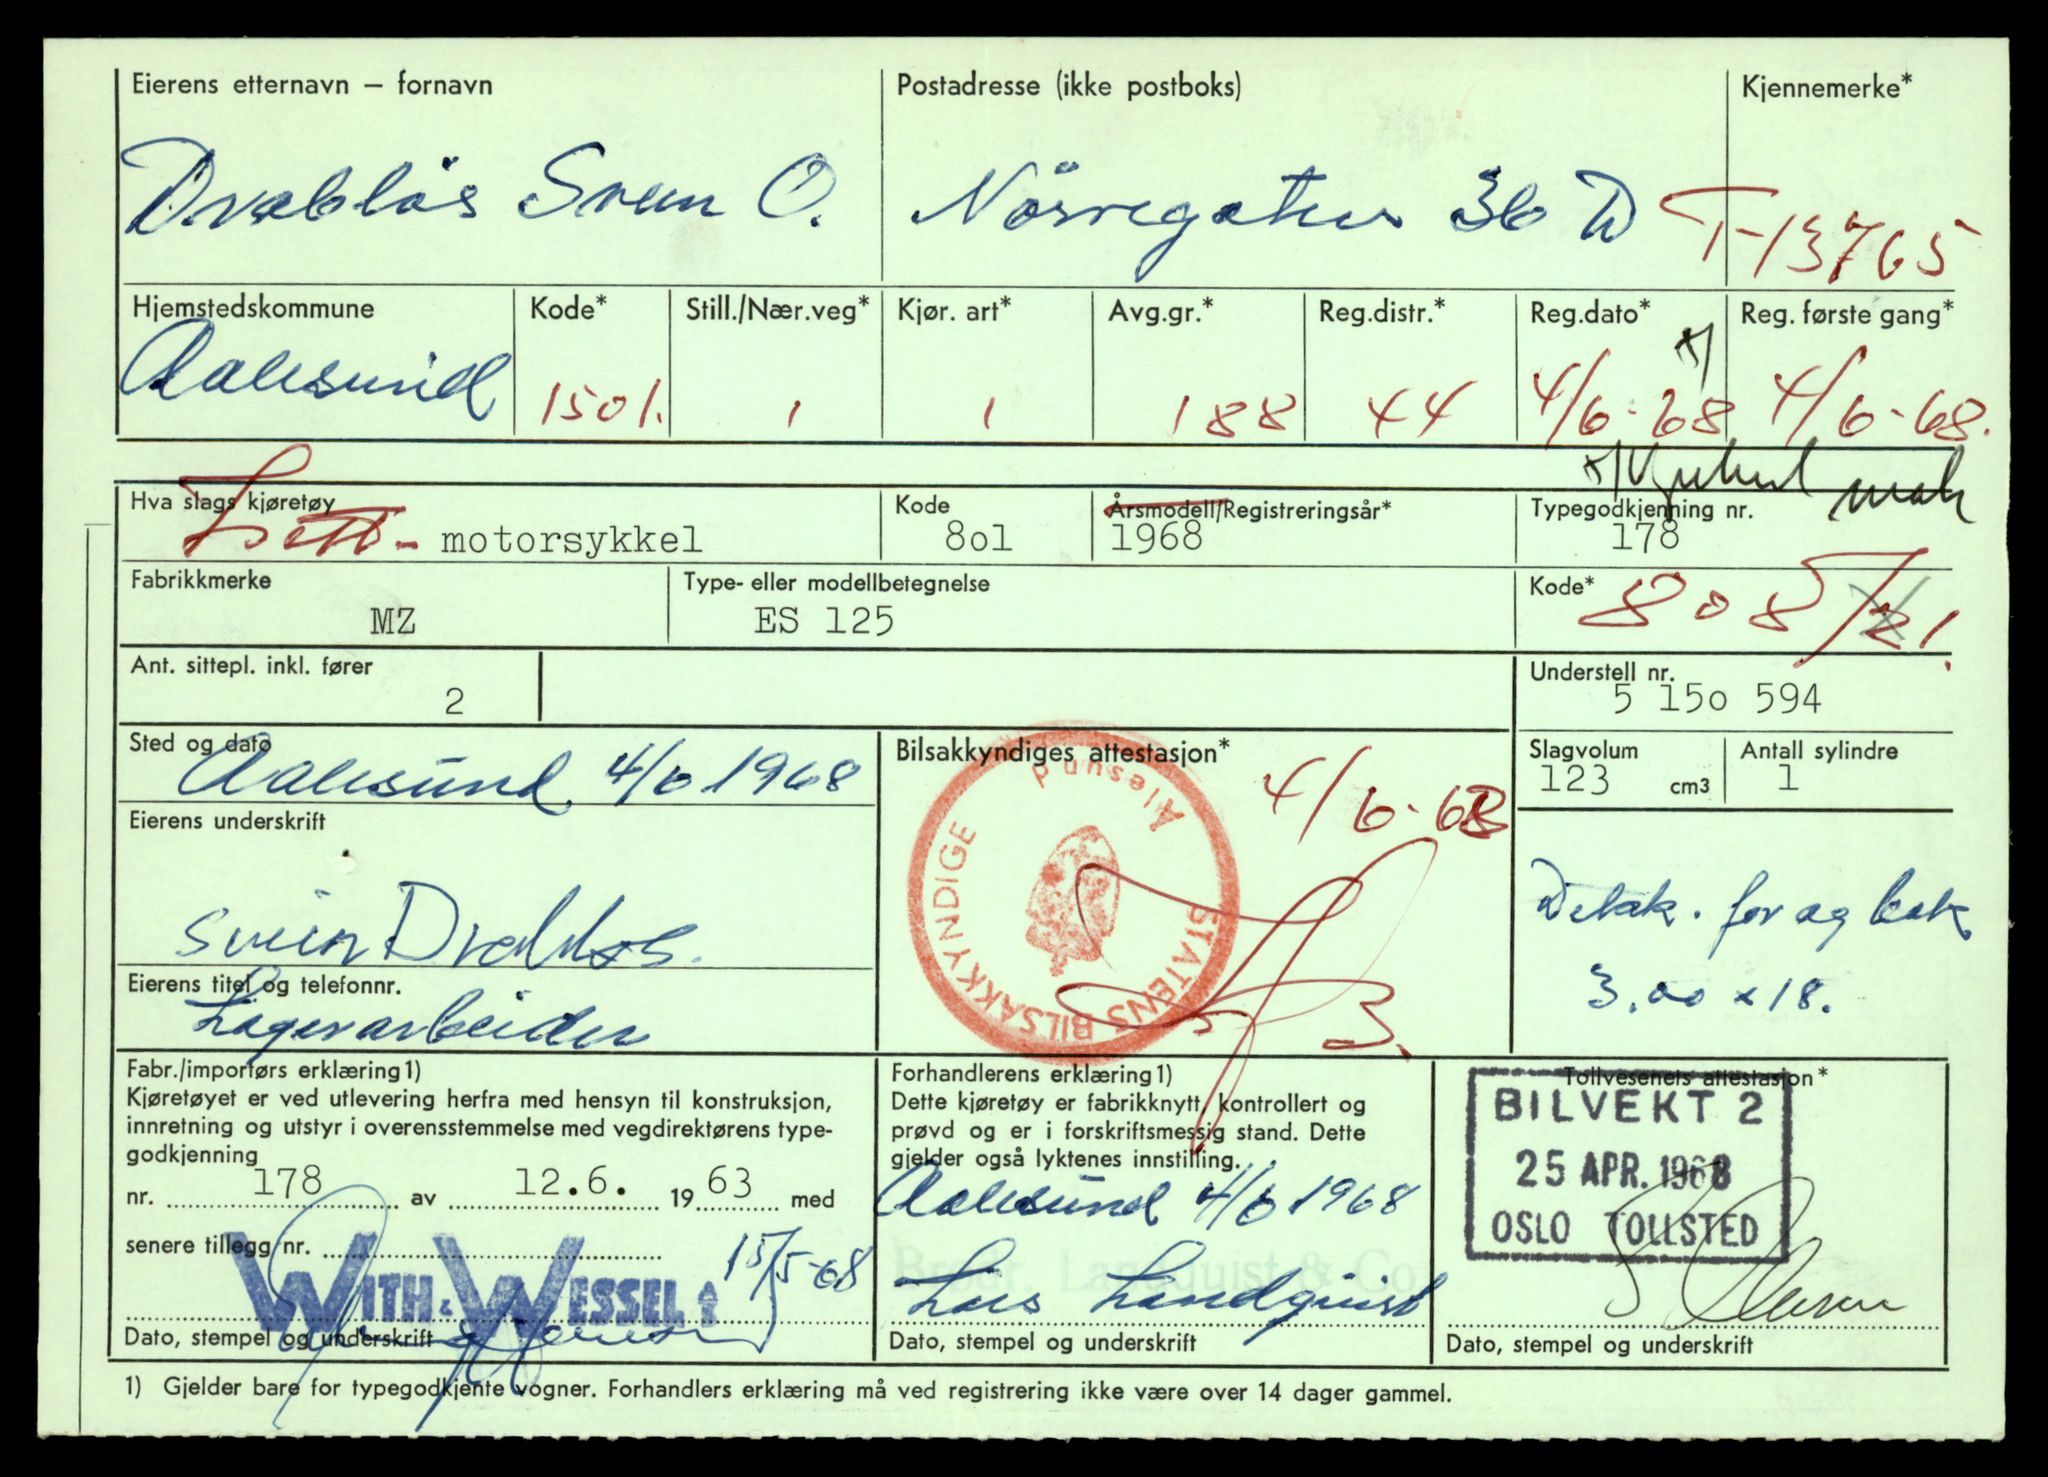 Eierens etternavn – fornavn
Postadresse (ikke postboks)
Kjennemerke*
Drabløs Svein O.
Nørregaten 36 D
T-13765
Hjemstedskommune
Kode*
Still./Nær.veg*
Kjør. art*
Avg.gr.*
Reg.distr.*
Reg.dato*
Reg. første gang*
Aalesund
1501.
1
1
188
44
4/6-68
x)
4/6-68.
Hva slags kjøretøy
Kode
Årsmodell/Registreringsår*
Typegodkjenning nr.
Lett- motorsykkel
8o1
1968
178
Fabrikkmerke
Type- eller modellbetegnelse
Kode*
MZ
ES 125
808/21.
Ant. sittepl. inkl. fører
Understell nr.
2
5 15o 594
Sted og dato
Bilsakkyndiges attestasjon*
Slagvolum
Antall sylindre
Aalesund 4/6 1968
4/6-68
123 cm3
1
Eierens underskrift
STATENS BILSAKKYNDIGE
Ålesund
Svein Drabløs.
Dekk. for og bak
3.00 x 18.
Eierens titel og telefonnr.
Lagerarbeider
Fabr./importørs erklæring1)
Kjøretøyet er ved utlevering herfra med hensyn til konstruksjon,
innretning og utstyr i overensstemmelse med vegdirektørens type-
godkjenning
nr. 178 av 12.6. 19 63 med
senere tillegg nr.
15/5-68
WITH & WESSEL
Dato, stempel og underskrift
Forhandlerens erklæring1)
Dette kjøretøy er fabrikknytt, kontrollert og
prøvd og er i forskriftsmessig stand. Dette
gjelder også lyktenes innstilling.
Aalesund 4/6 1968
Brødr. Landquist & Co.
Lars Landquist
Dato, stempel og underskrift
Tollvesenets attestasjon*
BILVEKT 2
25 APR. 1968
OSLO TOLLSTED
Dato, stempel og underskrift
1) Gjelder bare for typegodkjente vogner. Forhandlers erklæring må ved registrering ikke være over 14 dager gammel.